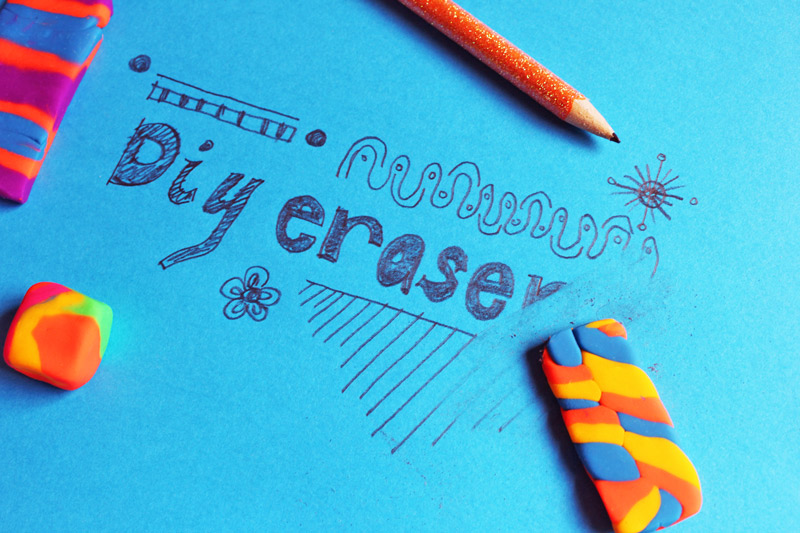 Diy eraser